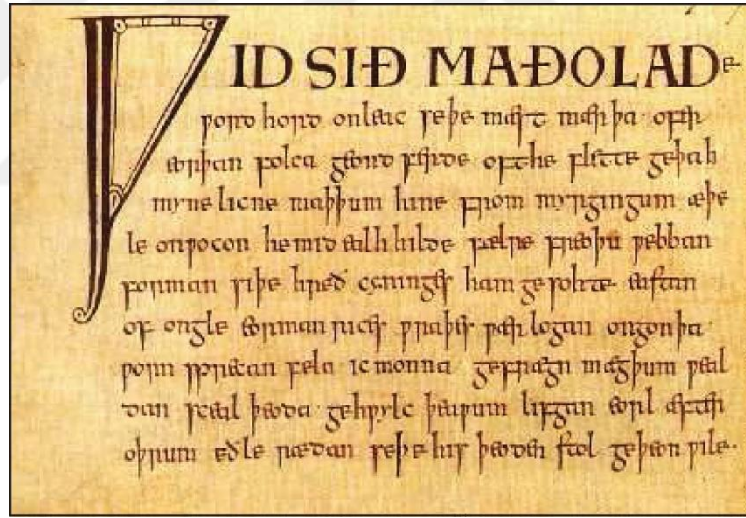 ǷIDSIÐ MAÐOLADE
ƿord hord onleac seþe mæst mærþa ofer
eorþan folca geond ferde oft he flette geþah
myne licne maþþum hine from myrgingum æþe
le onƿocon he mid ealh hilde fælre freoþu ƿebban
forman siþe hreð cyninges ham gesohte eastan
of ongle eorman rices ƿraþes ƿærlogan ongon þa
ƿorn sprecan fela ic monna gefrægn mægþum ƿeal
dan sceal þeoda gehƿylc þeaƿum lifgan eorl æfter
oþrum eðle rædan seþe his þeoden stol geþeon ƿile.